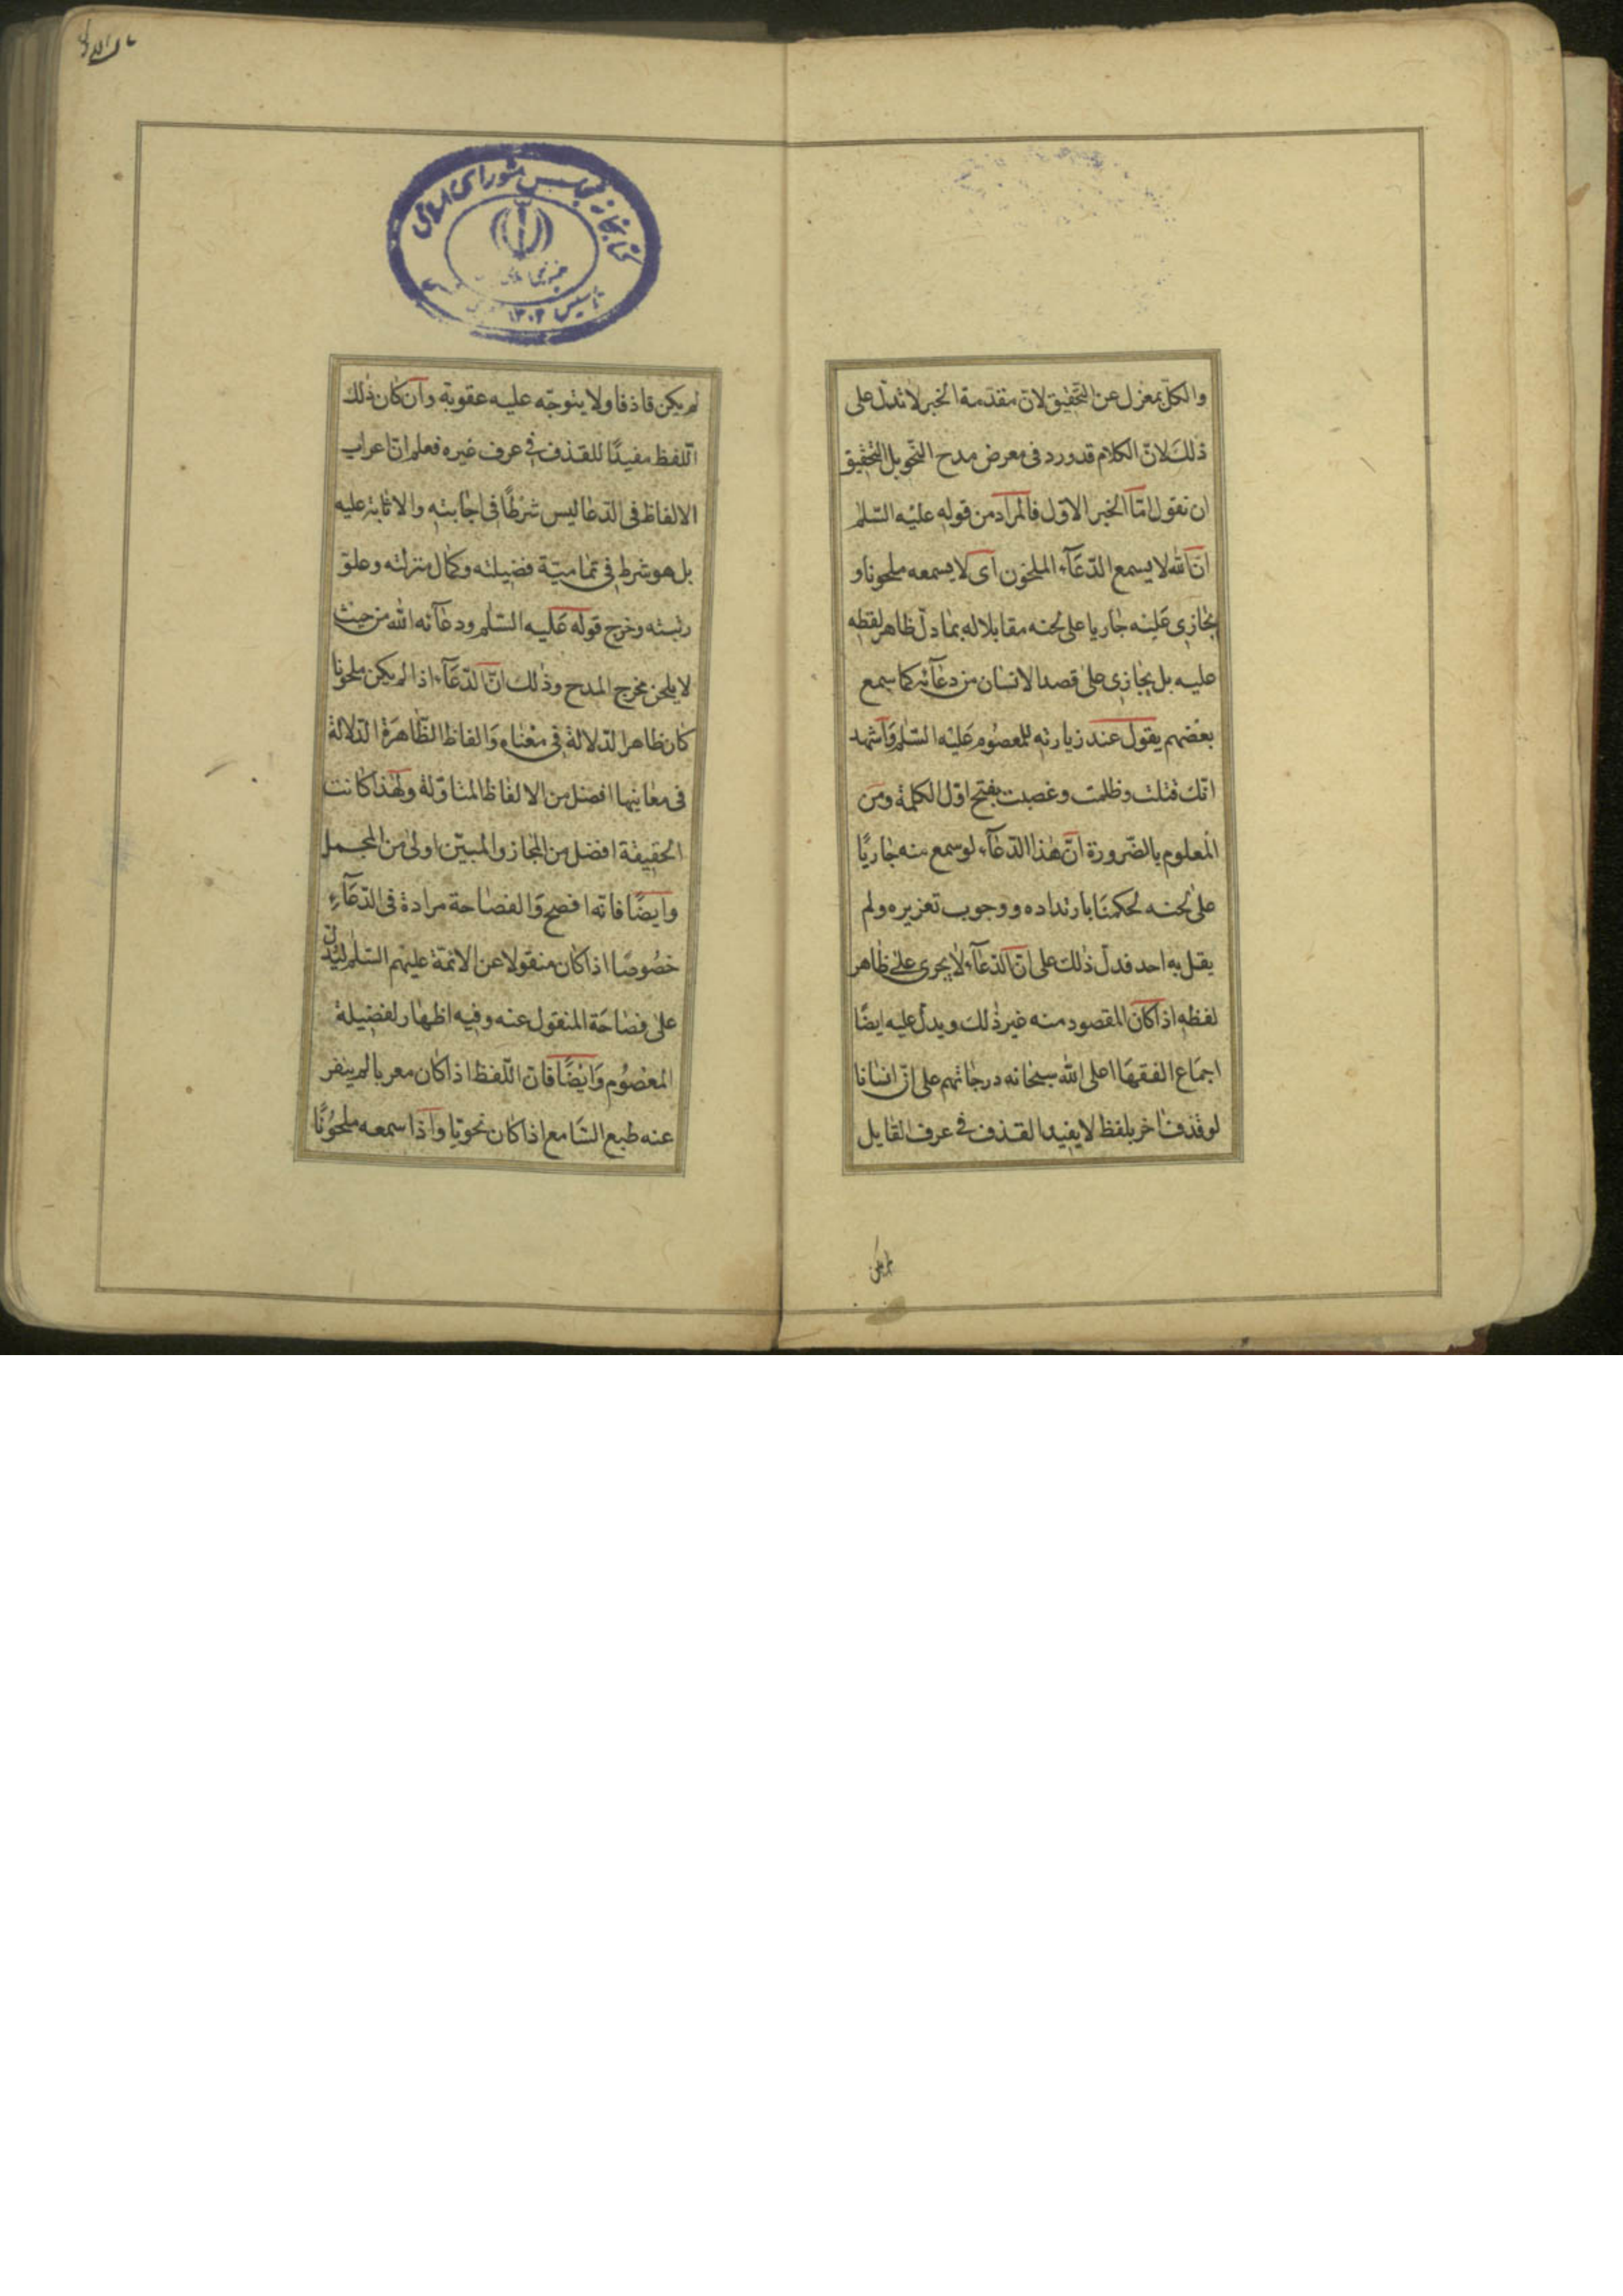 والكلّ بمعزل عن التّحقيق لانّ مقدّمة الخبر لا تدلّ على
ذلك لانّ الكلام قد ورد فى معرض مدح النّحو بل التّحقيق
ان نقول امّا الخبر الاوّل فالمراد من قوله عليه السّلم
انّ الله لا يسمع الدّعآء الملحون اى لا يسمعه ملحونا و
يجازى عليه جاريا على لحنه مقابلا له بما دلّ ظاهر لفظه
عليه بل يجازى على قصد الانسان من دعآئه كما سمع
بعضهم يقول عند زيارته للمعصوم عليه السّلم واشهد
انّك قتلت وظلمت وغصبت بفتح اوّل الكلمة ومن
المعلوم بالضّرورة انّ هذا الدّعآء لو سمع منه جاريًا
على لحنه لحكمنا بارتداده ووجوب تعزيره ولم
يقل به احد فدلّ ذلك على انّ الدّعآء لا يجرى على ظاهر
لفظه اذا كان المقصود منه غير ذلك ويدلّ عليه ايضًا
اجماع الفقها اعلى الله سبحانه درجاتهم على انّ انسانا
لو قذف اخر بلفظ لا يفيد القذف فى عرف القايل
لم يكن
لم يكن قاذفا ولا يتوجّه عليه عقوبة وان كان ذلك
اللّفظ مفيدًا للقذف فى عرف غيره فعلم انّ اعراب
الالفاظ فى الدّعا ليس شرطًا فى اجابته والاثابة عليه
بل هو شرط فى تماميّة فضيلته وكمال منزلته وعلوّ
رتبته وخرج قوله عليه السّلم ودعآئه الله من حيث
لا يلحن مخرج المدح وذلك انّ الدّعآء اذا لم يكن ملحونا
كان ظاهر الدّلالة فى معناه والفاظ الظّاهرة الدّلالة
فى معانيها افضل من الالفاظ المتاوّلة ولهذا كانت
الحقيقة افضل من المجاز والمبيّن اولى من المجمل
وايضًا فانّه افصح والفصاحة مرادة فى الدّعآء
خصوصًا اذا كان منقولا عن الائمّة عليهم السّلم ليدلّ
على فصاحة المنقول عنه وفيه اظهار لفضيلة
المعصوم وايضًا فانّ اللّفظ اذا كان معربا لم ينفر
عنه طبع السّامع اذا كان نحويّا واذا سمعه ملحونًا
كتابخانه مجلس شورای اسلامی
تأسیس ۱۳۰۲